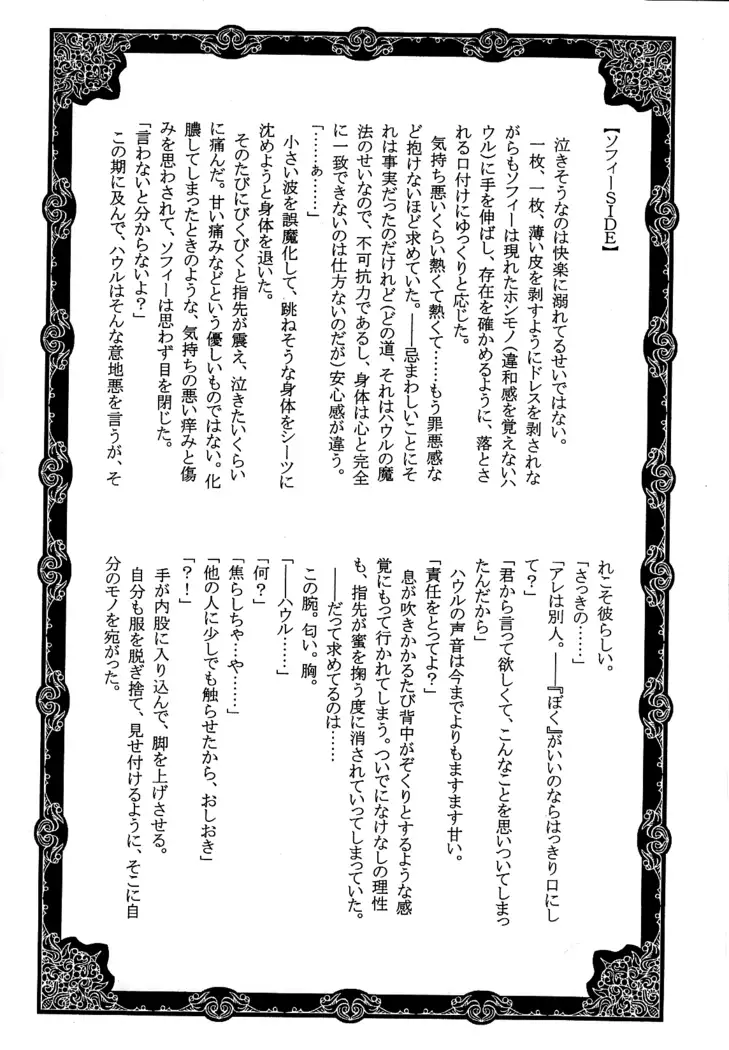 【ソフィーSIDE】
泣きそうなのは快楽に溺れてるせいではない。
一枚、一枚、薄い皮を剥すようにドレスを剥されな
がらもソフィーは現れたホンモノ(違和感を覚えないハ
ウル)に手を伸ばし、存在を確かめるように、落とさ
れる口付けにゆっくりと応じた。
気持ち悪いくらい熱くて熱くて……もう罪悪感な
ど抱けないほど求めていた。――忌まわしいことにそ
れは事実だったのだけれど(どの道、それはハウルの魔
法のせいなので、不可抗力であるし、身体は心と完全
に一致できないのは仕方ないのだが)安心感が違う。
「……ぁ……」
小さい波を誤魔化して、跳ねそうな身体をシーツに
沈めようと身体を退いた。
そのたびにびくびくと指先が震え、泣きたいくらい
に痛んだ。甘い痛みなどという優しいものではない。化
膿してしまったときのような、気持ちの悪い痒みと傷
みを思わされて、ソフィーは思わず目を閉じた。
「言わないと分からないよ?」
この期に及んで、ハウルはそんな意地悪を言うが、そ
れこそ彼らしい。
「さっきの……」
「アレは別人。――『ぼく』がいいのならはっきり口にし
て?」
「君から言って欲しくて、こんなことを思いついてしまっ
たんだから」
ハウルの声音は今までよりもますます甘い。
「責任をとってよ?」
息が吹きかかるたび背中がぞくりとするような感
覚にもって行かれてしまう。ついでになけなしの理性
も、指先が蜜を掬う度に消されていってしまっていた。
――だって求めてるのは……
この腕。匂い。胸。
「――ハウル……」
「何?」
「焦らしちゃ…や……」
「他の人に少しでも触らせたから、おしおき」
「?!」
手が内股に入り込んで、脚を上げさせる。
自分も服を脱ぎ捨て、見せ付けるように、そこに自
分のモノを宛がった。